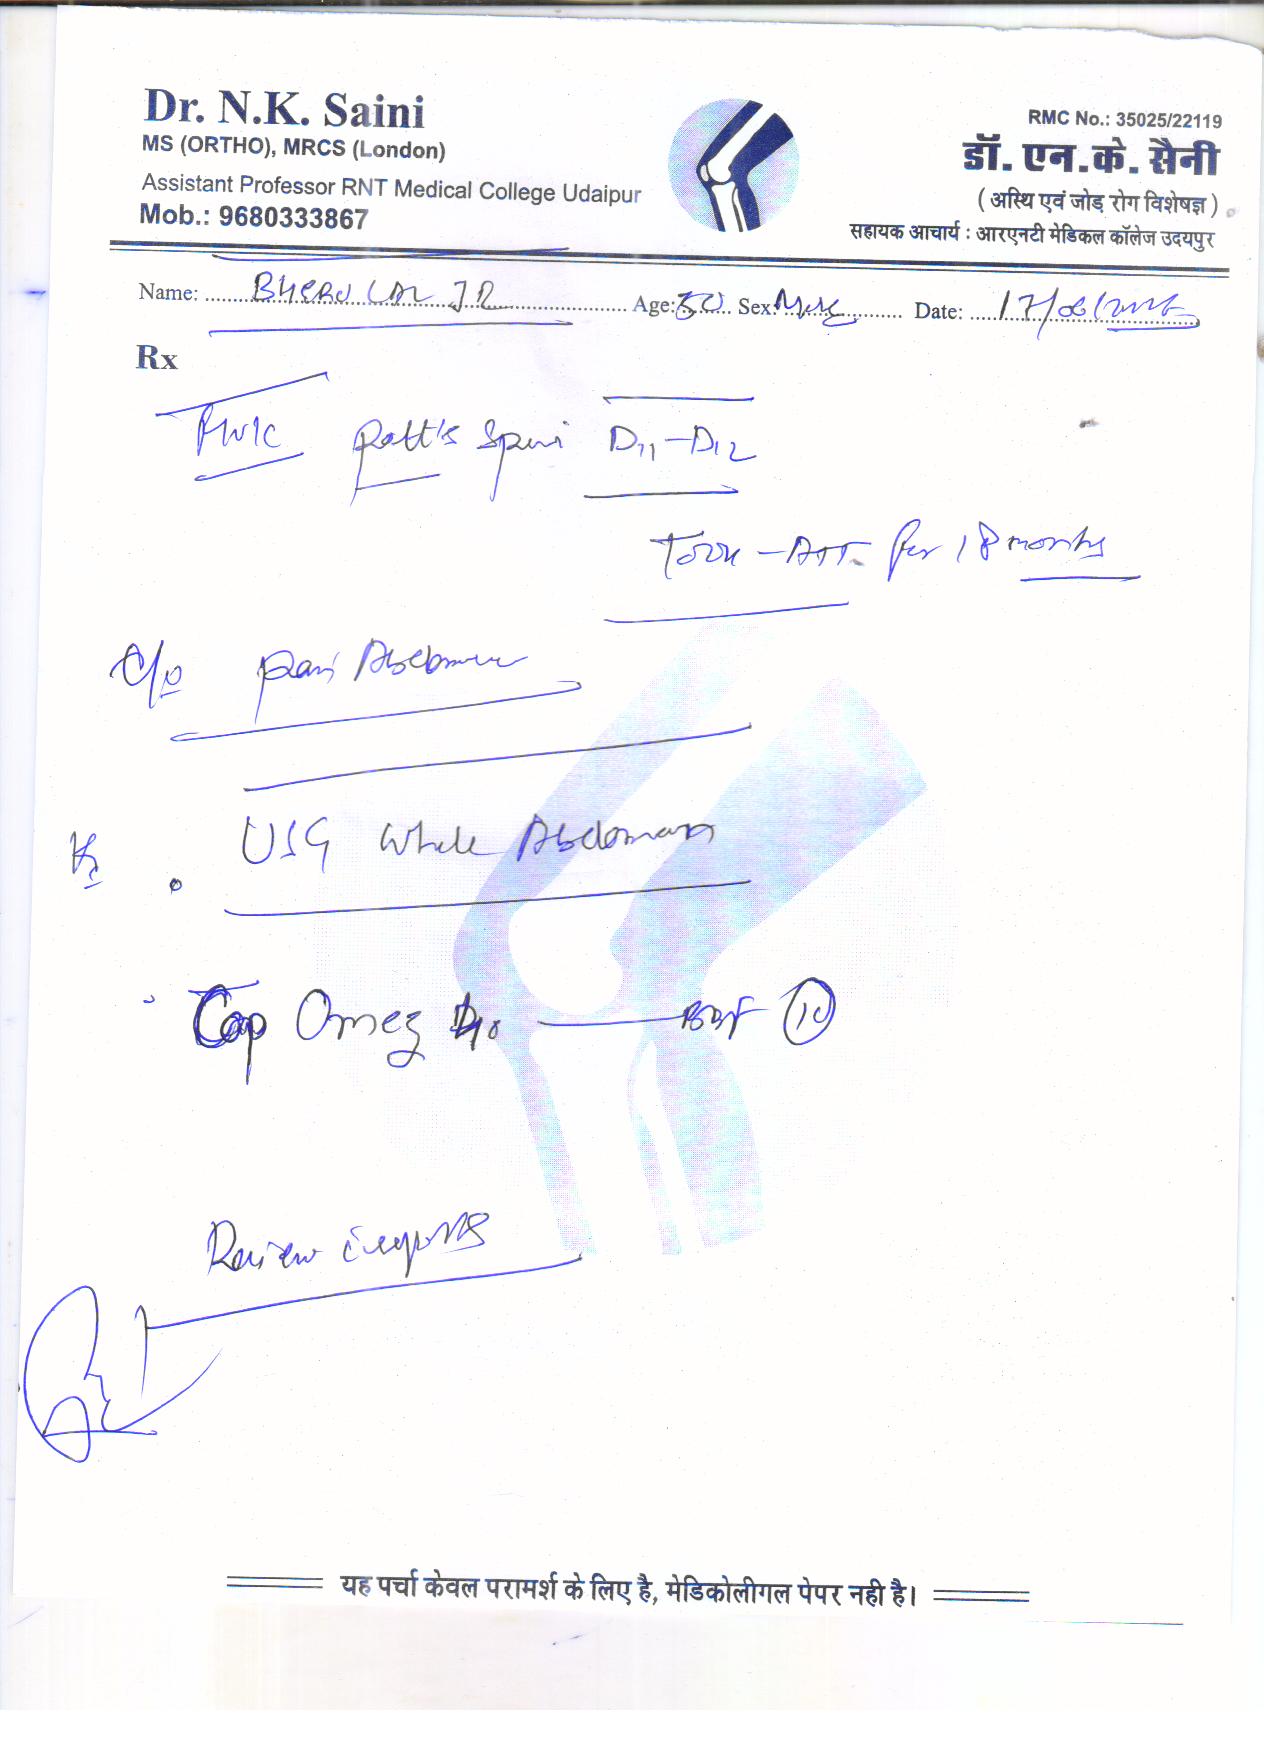 Dr. N.K. Saini
MS (ORTHO), MRCS (London)
Assistant Professor RNT Medical College Udaipur
Mob.: 9680333867
RMC No.: 35025/22119
डॉ. एन.के. सैनी
( अस्थि एवं जोड़ रोग विशेषज्ञ )
सहायक आचार्य : आरएनटी मेडिकल कॉलेज उदयपुर
Name: BHERU LAL JR Age: 50 Sex: Male Date: 17/06/
Rx
Pott's Spine D11-D12
Took - ATT. for 18 months
C/o Pain Abdomen
USG Whole Abdomen
Cap Omez BBF 10
Review reports
यह पर्चा केवल परामर्श के लिए है, मेडिकोलीगल पेपर नही है।